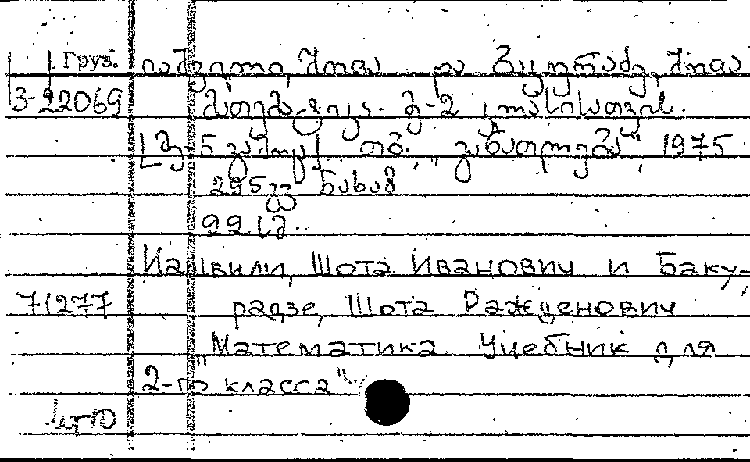 Груз. იაშვილი, შოთა და ბაკურაძე, შოთა
3-22069 მათემატიკა. მ-2 კლასისათვის.
[მე-5 გამოც.] თბ., „განათლება", 1975
295გვ. ნახაზ
22სმ.
Иашвили, Шота Иванович и Баку-
71277 радзе, Шота Ражденович
"Математика. Учебник для
2-го класса"